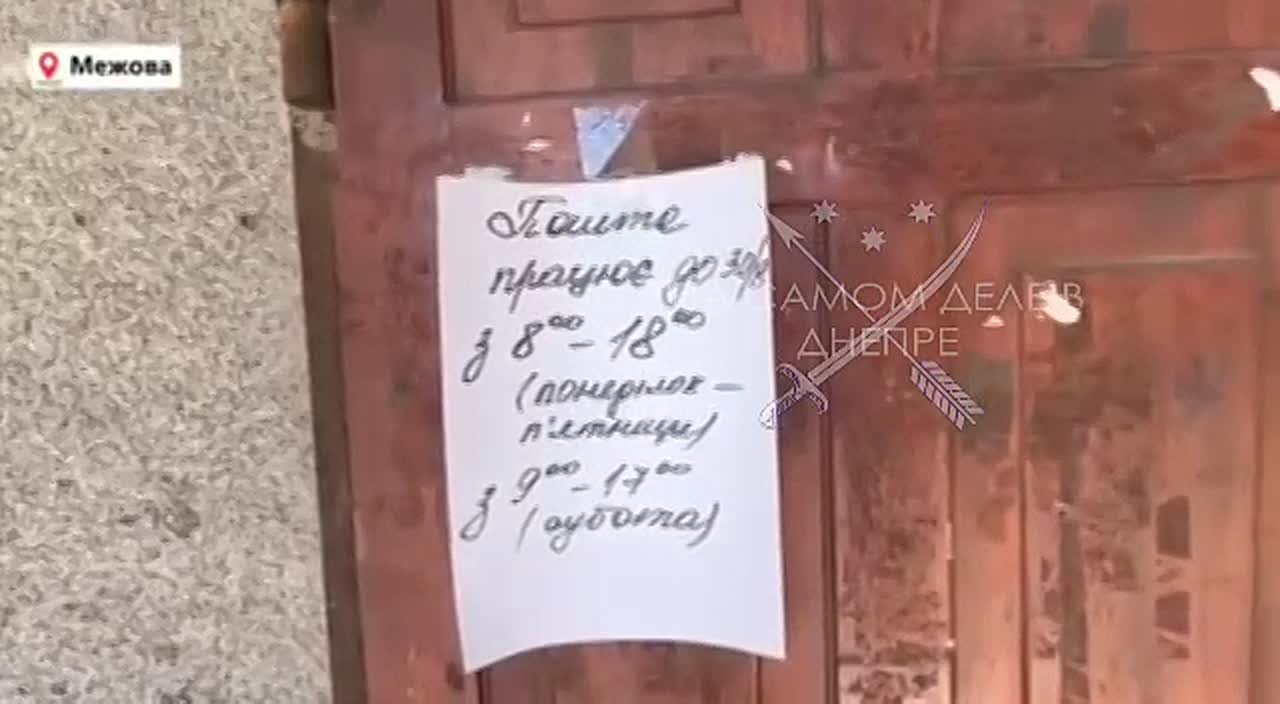 Межова
Пошта
працює до 30/8
з 8⁰⁰ - 18⁰⁰
(понеділок -
п'ятниця)
з 9⁰⁰ - 17⁰⁰
(субота)
САМОМ ДЕЛЕ В
ДНЕПРЕ